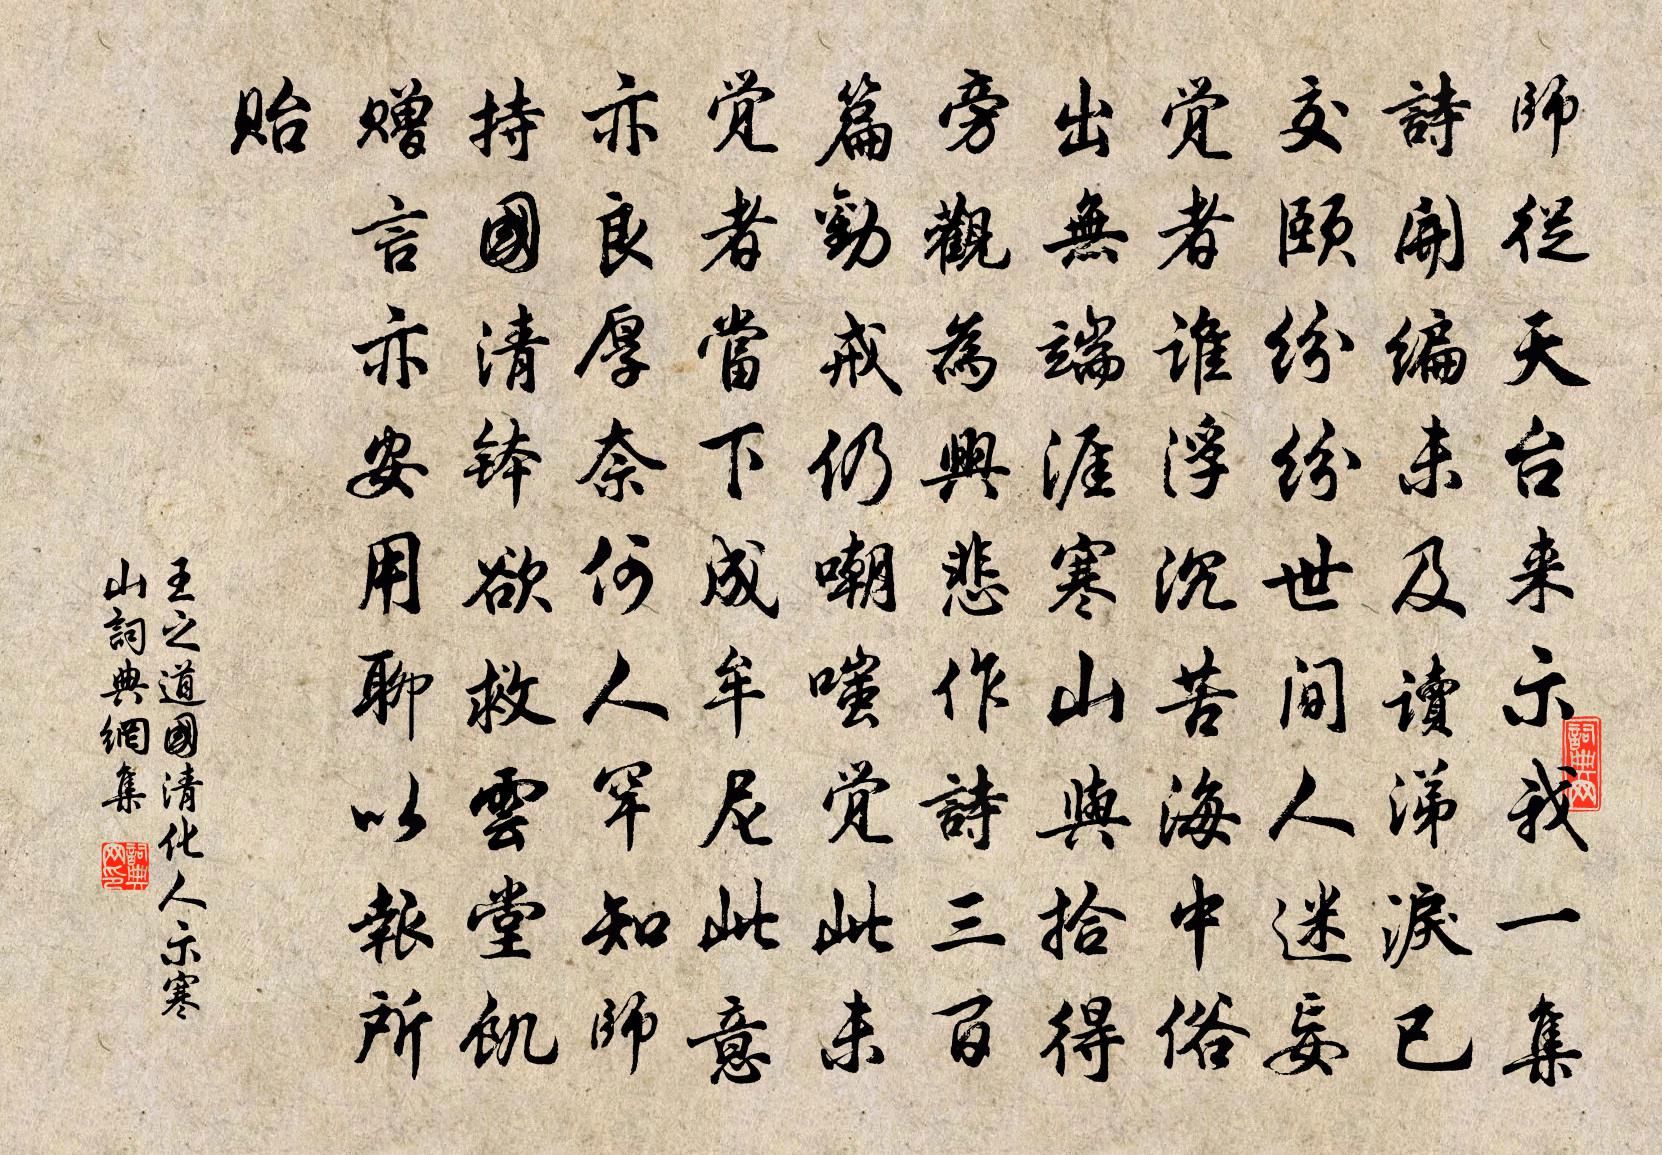 師從天台来示我一集
詩開编未及讀涕淚已
交頤紛紛世间人迷妄
觉者谁浮沉苦海中俗
出無端涯寒山與拾得
旁觀為興悲作詩三百
篇勸戒仍嘲嗤觉此未
觉者當下成牟尼此意
亦良厚奈何人罕知師
持國清钵欲救雲堂飢
赠言亦安用聊以報所
贻
王之道國清化人示寒
山詞典網集
詞典网
詞典网印